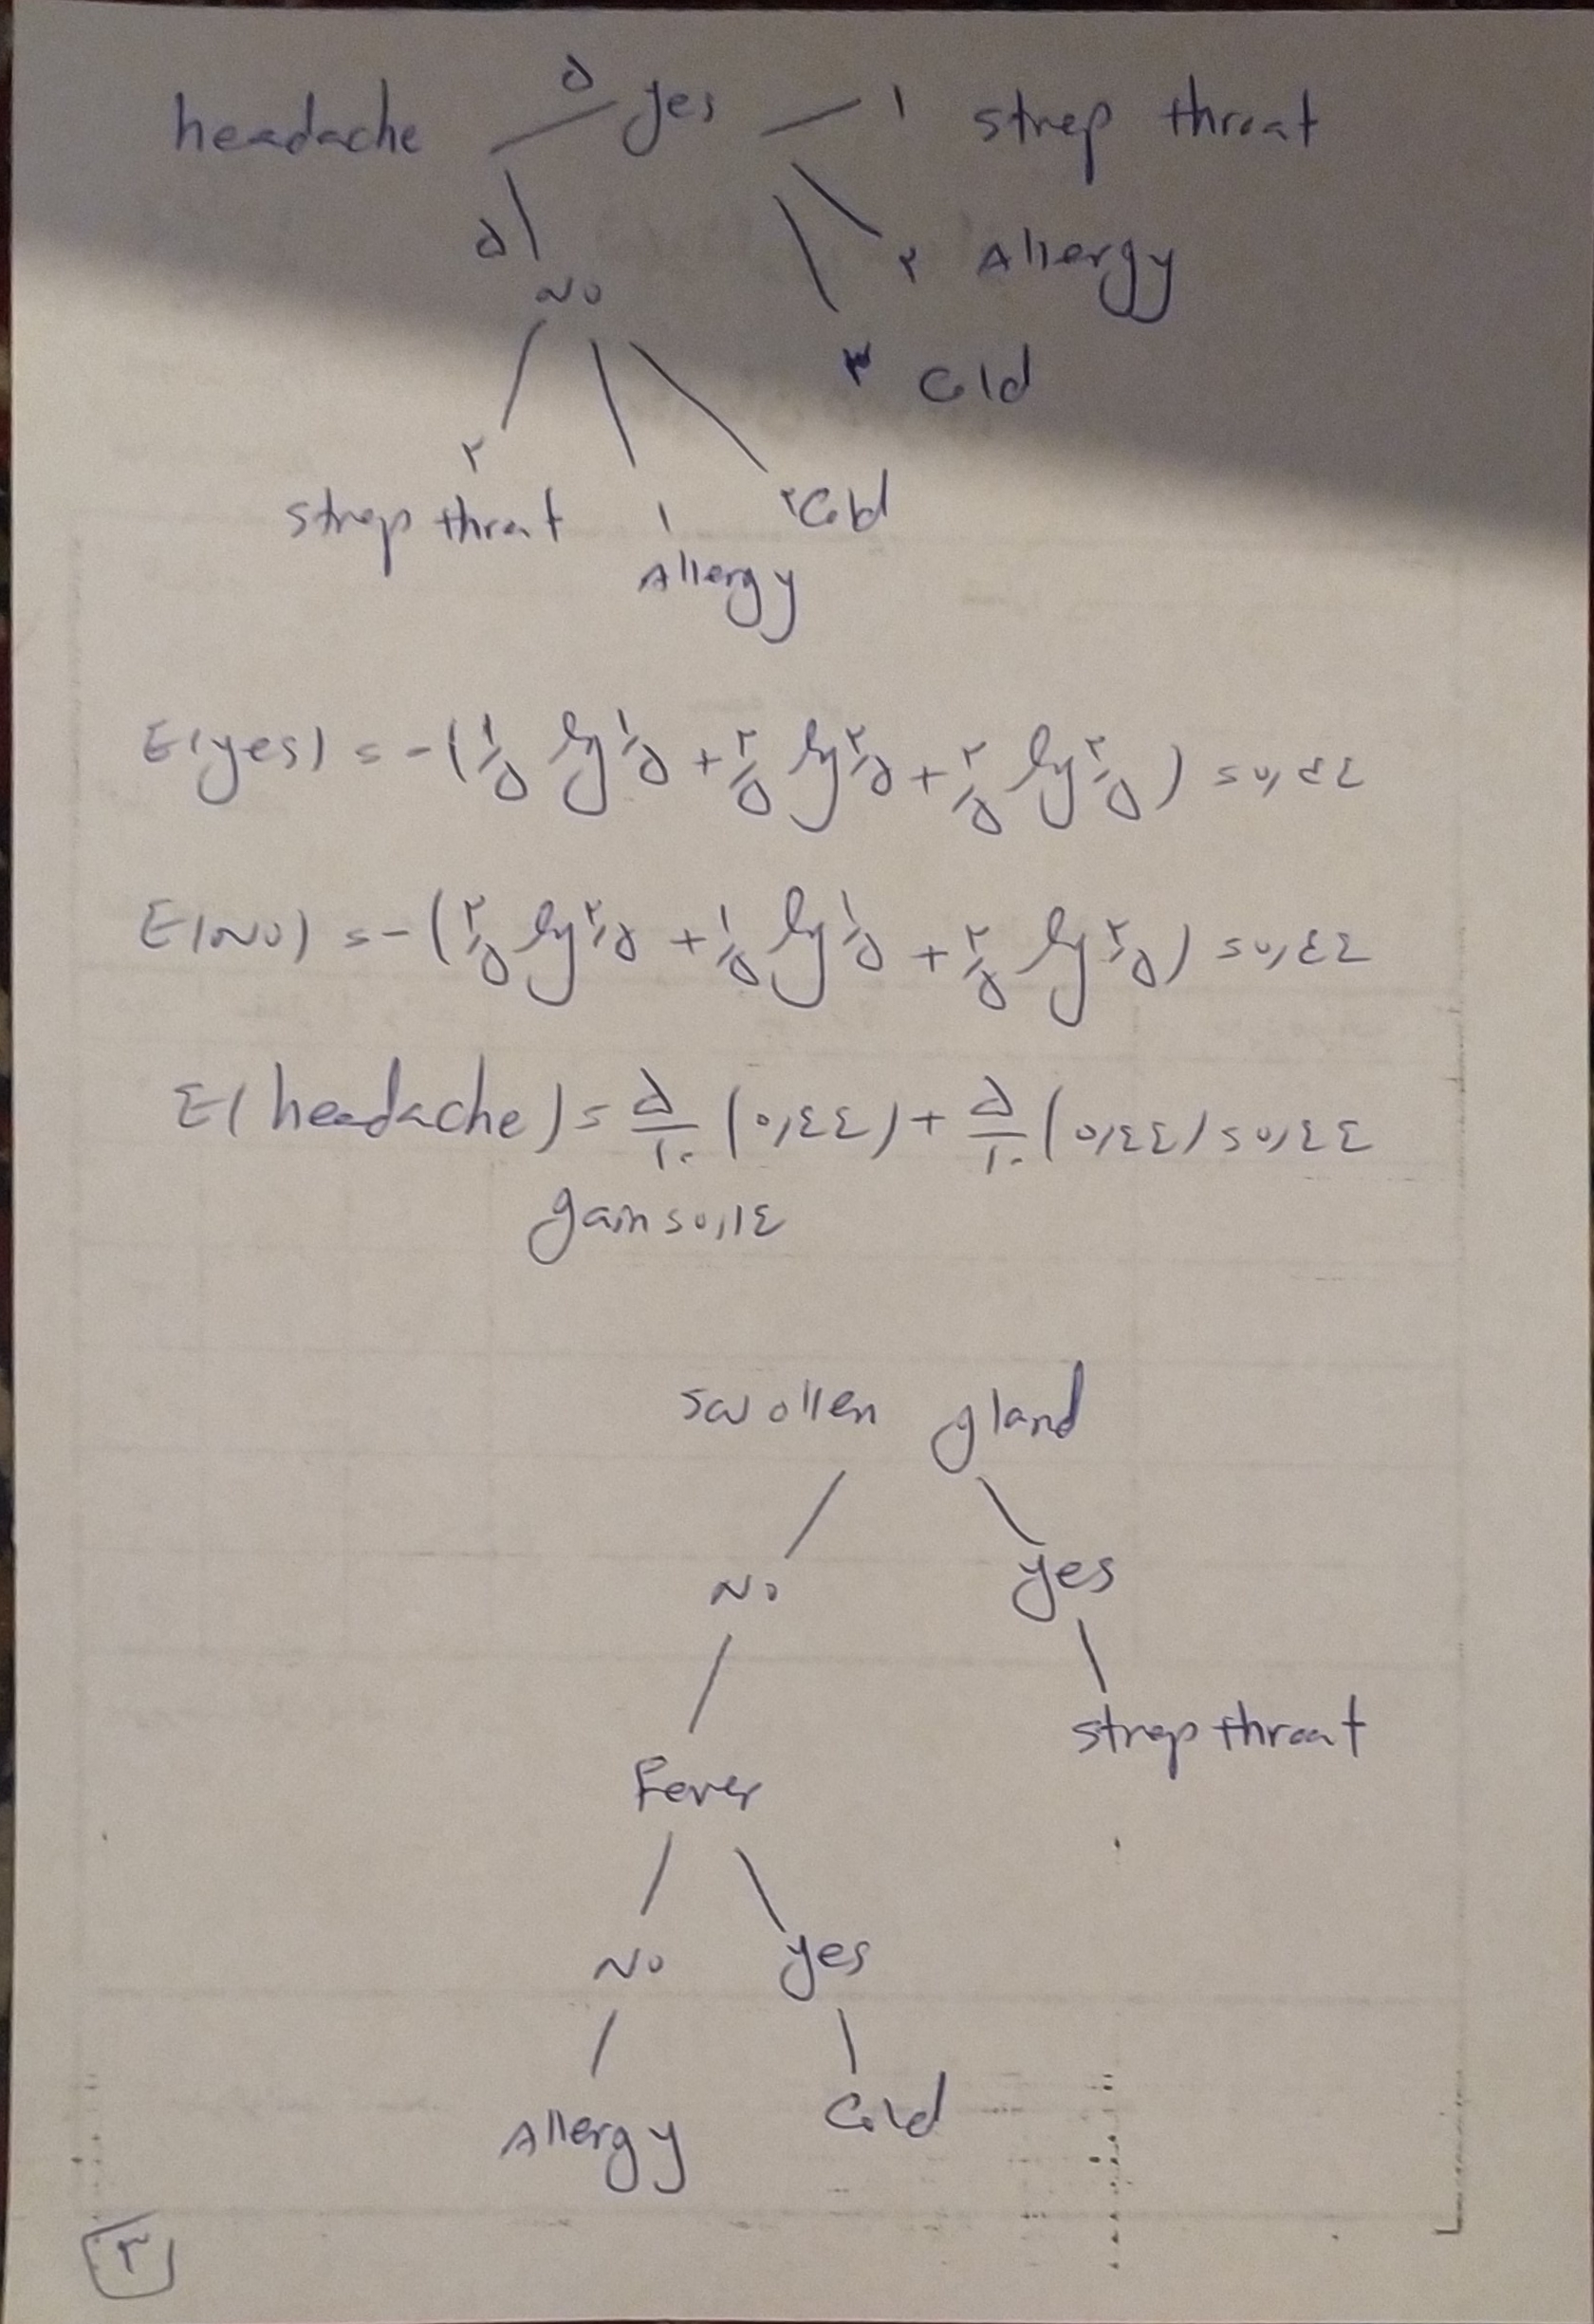 headache ۵ yes ۱ strep throat
۵ No ۲ Allergy
۲ Cold
۲ strep throat ۱ Allergy ۲ Cold
E(yes) = -(۱/۵ lg ۱/۵ + ۲/۵ lg ۲/۵ + ۲/۵ lg ۲/۵) = ۰,٤٤
E(No) = -(۲/۵ lg ۲/۵ + ۱/۵ lg ۱/۵ + ۲/۵ lg ۲/۵) = ۰,٤٤
E(headache) = ۵/۱۰ (۰,٤٤) + ۵/۱۰ (۰,٤٤) = ۰,٤٤
gain = ۰,۱٤
swollen gland
No yes
strep throat
Fever
No yes
Allergy Cold
۲